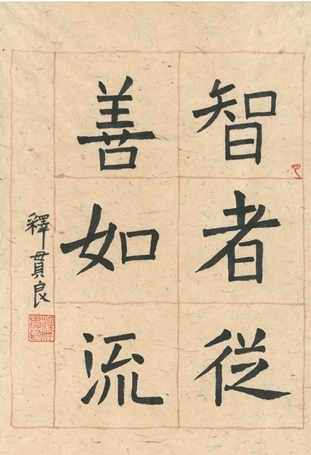 智者從
善如流
釋貫良